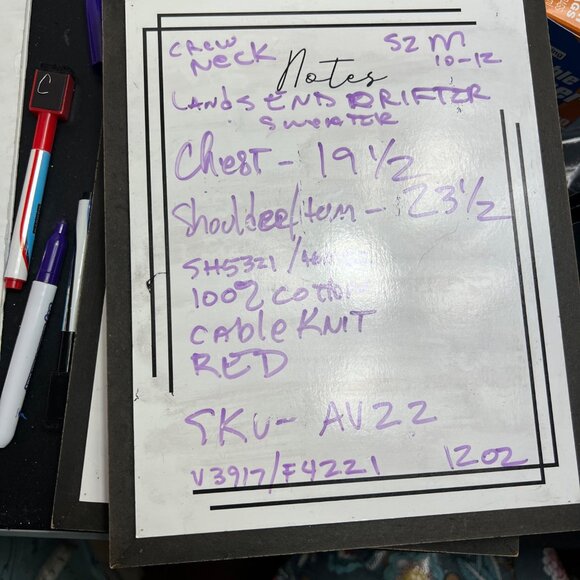 CREW NECK
SZ M
10-12
Notes
LANDS END DRIFTER
SWEATER
Chest - 19 1/2
Shoulder/Hem - 23 1/2
100% COTTON
CABLE KNIT
RED
SKU- AV22
V3917/F4221
12oz
C